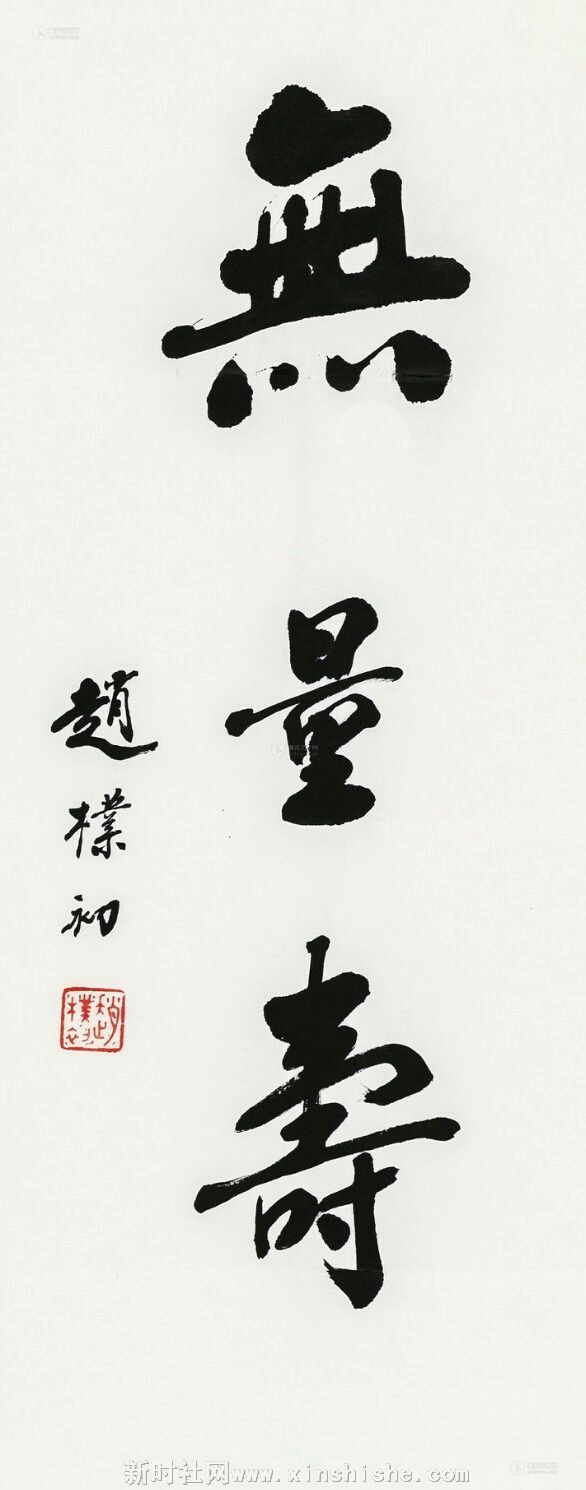 無量壽
趙樸初
趙樸初
新时社网www.xinshishe.com